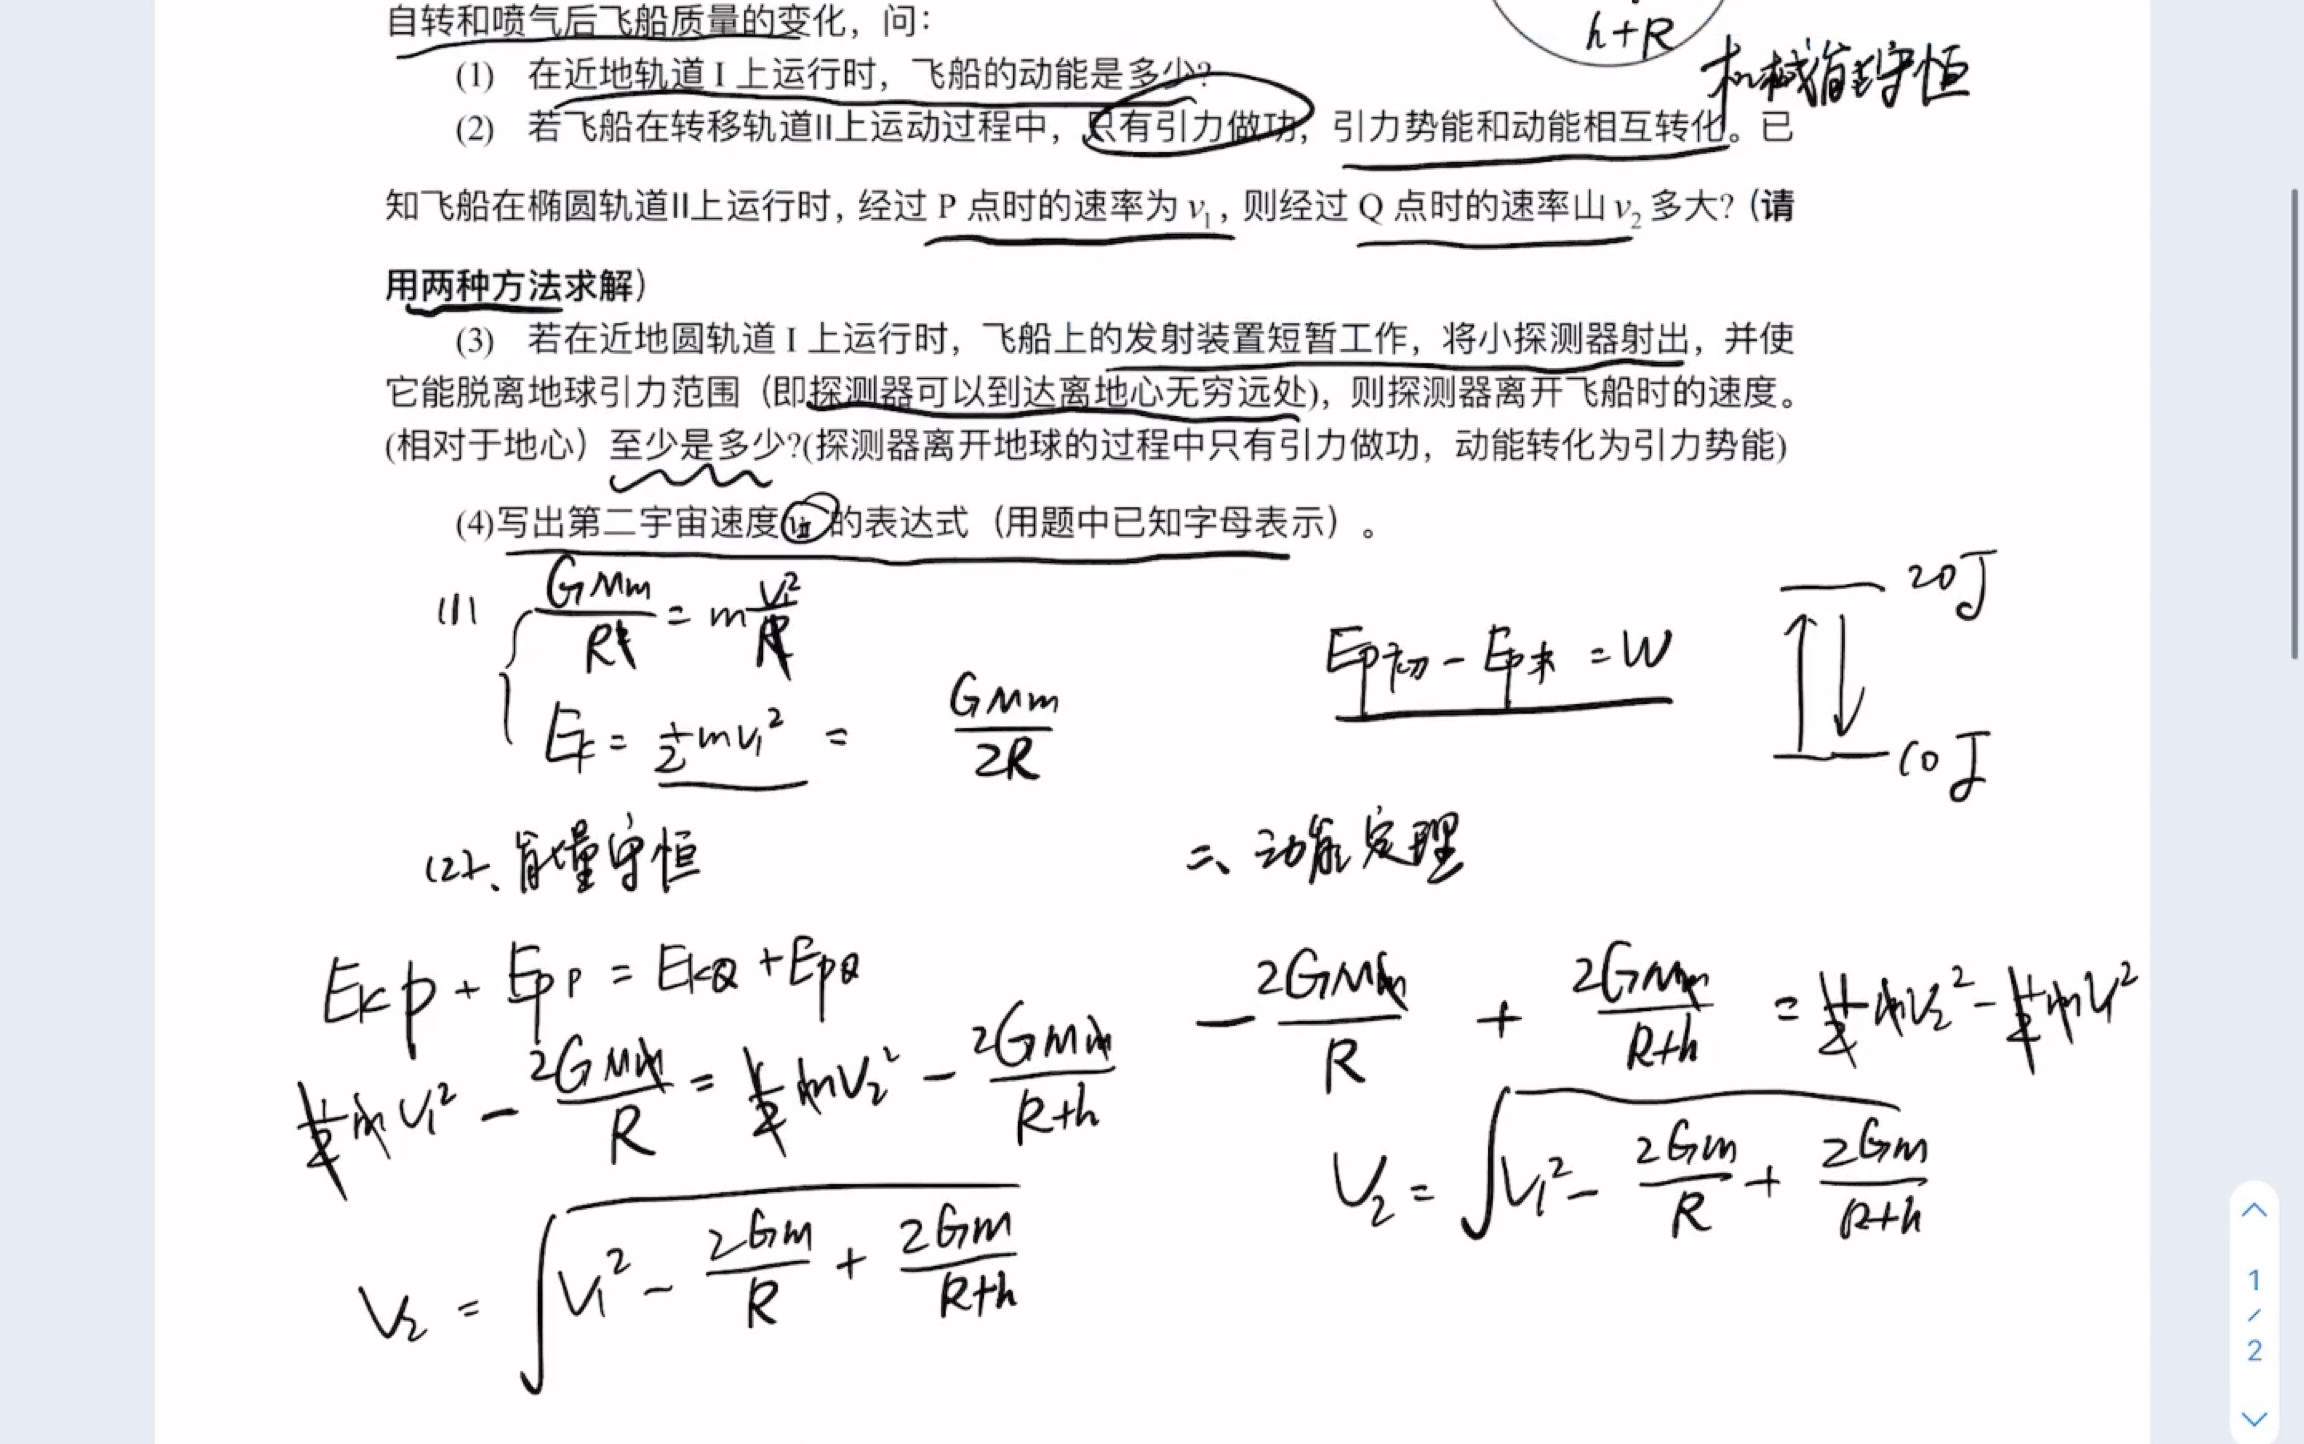 自转和喷气后飞船质量的变化，问：
h+R
机械能守恒
(1) 在近地轨道 I 上运行时，飞船的动能是多少?
(2) 若飞船在转移轨道II上运动过程中，只有引力做功，引力势能和动能相互转化。已
知飞船在椭圆轨道II上运行时, 经过 P 点时的速率为 v₁, 则经过 Q 点时的速率山 v₂ 多大?（请
用两种方法求解）
(3) 若在近地圆轨道 I 上运行时，飞船上的发射装置短暂工作，将小探测器射出，并使
它能脱离地球引力范围（即探测器可以到达离地心无穷远处)，则探测器离开飞船时的速度。
(相对于地心）至少是多少?(探测器离开地球的过程中只有引力做功，动能转化为引力势能)
(4)写出第二宇宙速度 vⅡ 的表达式（用题中已知字母表示）。
(1) GMm/R² = m v₁²/R
Ek = ½mv₁² = GMm/2R
Ep初 - Ep末 = W
20J
10J
(2)、能量守恒
EkP + EpP = EkQ + EpQ
½mv₁² - 2GMm/R = ½mv₂² - 2GMm/R+h
v₂ = √(v₁² - 2Gm/R + 2Gm/R+h)
二、动能定理
- 2GMm/R + 2GMm/R+h = ½mv₂² - ½mv₁²
v₂ = √(v₁² - 2Gm/R + 2Gm/R+h)
1
/
2